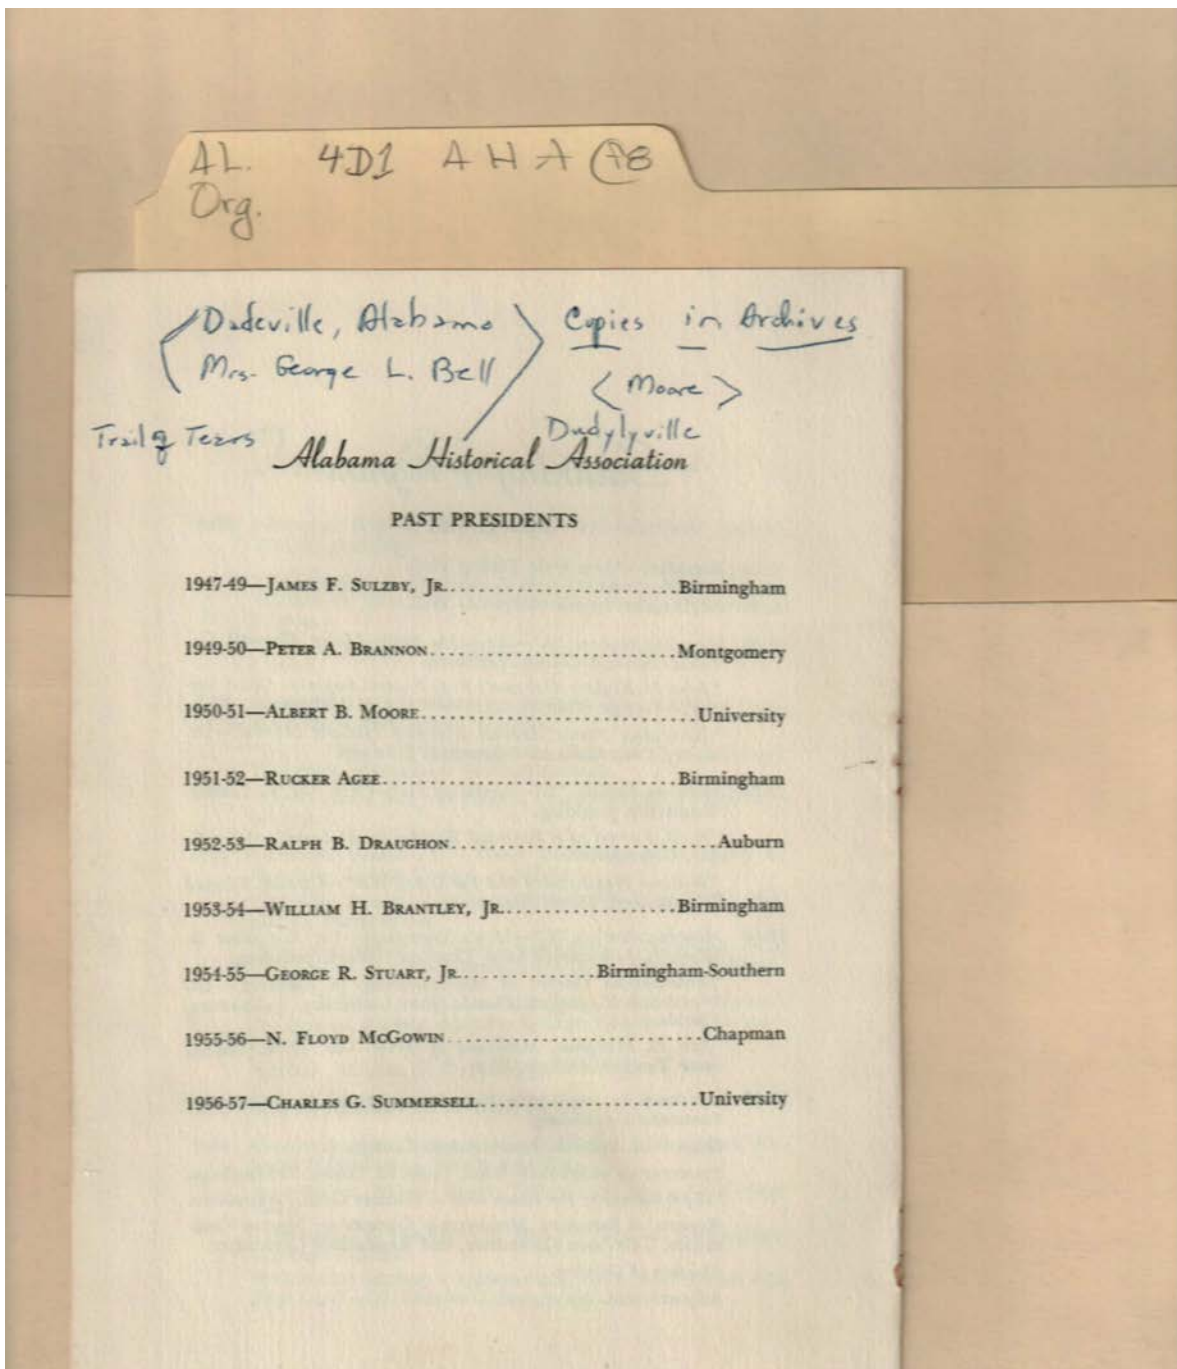 AL. 4D1 A H A
Org.
Dadeville, Alabama Copies in Archives
Mrs. George L. Bell < Moore >
Trail of Tears Dudylyville
Alabama Historical Association
PAST PRESIDENTS
1947-49—JAMES F. SULZBY, JR..........................Birmingham
1949-50—PETER A. BRANNON..........................Montgomery
1950-51—ALBERT B. MOORE..............................University
1951-52—RUCKER AGEE................................Birmingham
1952-53—RALPH B. DRAUGHON.............................Auburn
1953-54—WILLIAM H. BRANTLEY, JR...................Birmingham
1954-55—GEORGE R. STUART, JR...............Birmingham-Southern
1955-56—N. FLOYD MCGOWIN............................Chapman
1956-57—CHARLES G. SUMMERSELL........................University